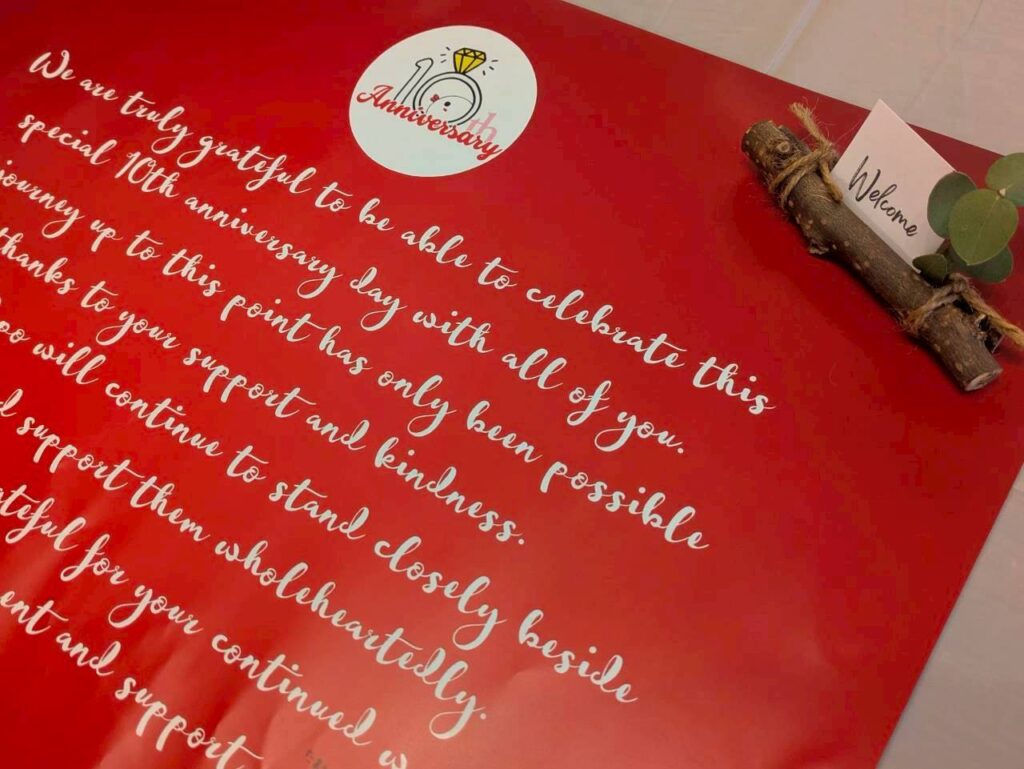 10th
Anniversary
Welcome
We are truly grateful to be able to celebrate this
special 10th anniversary day with all of you.
journey up to this point has only been possible
thanks to your support and kindness.
will continue to stand closely beside
support them wholeheartedly.
for your continued
and support